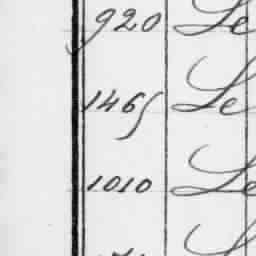 920 Le
1465 Le
1010 Le